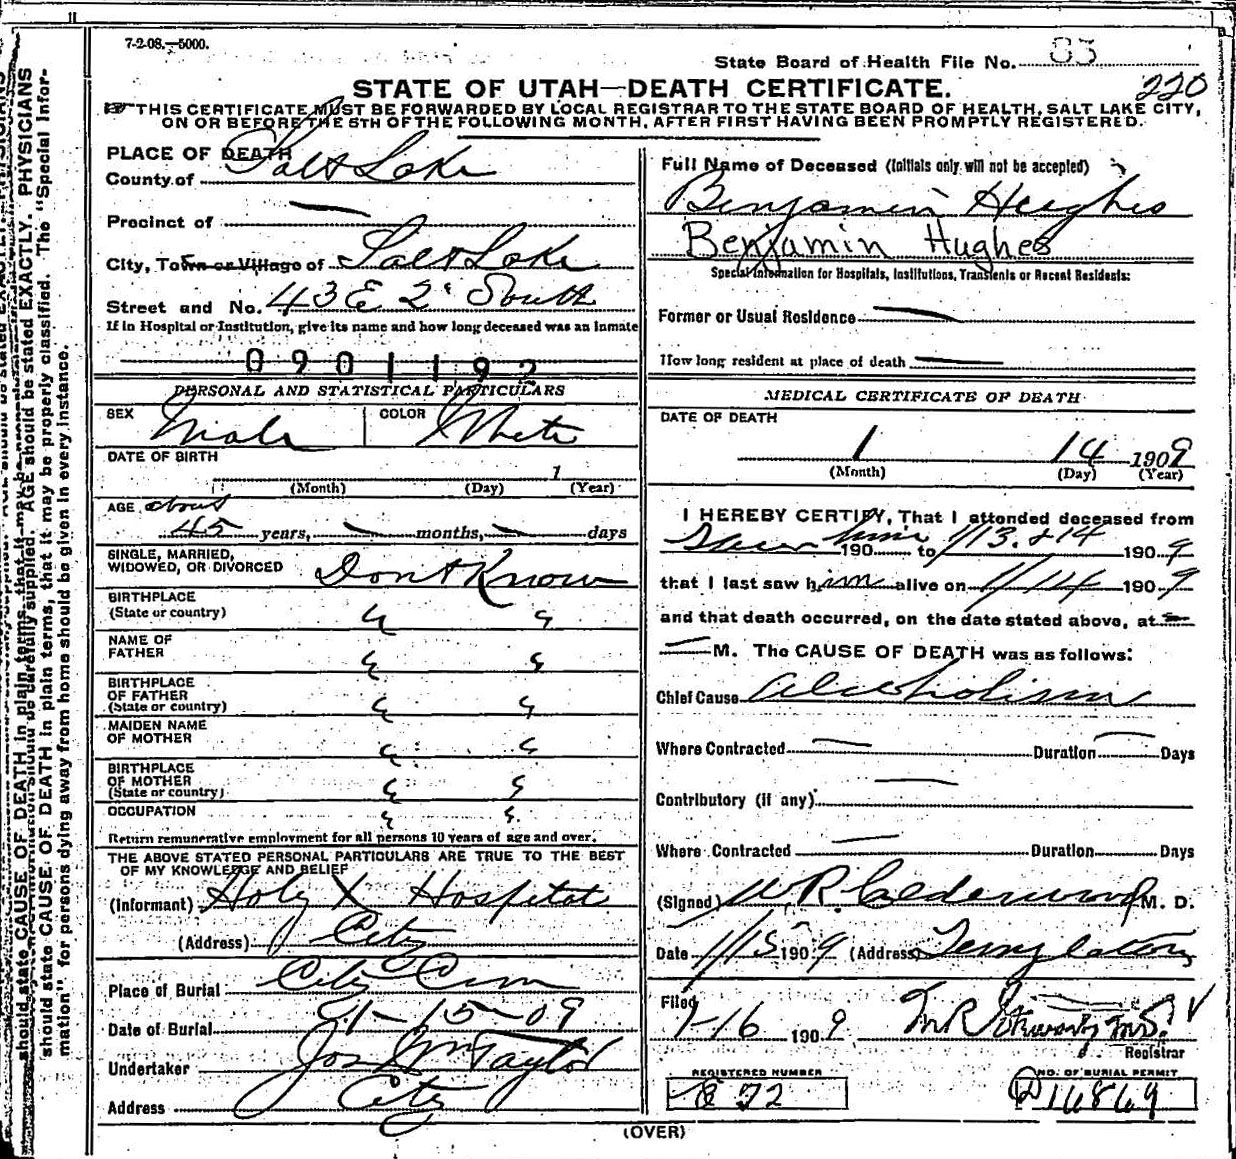 7-2-08.—5000.
State Board of Health File No. 83
220
STATE OF UTAH—DEATH CERTIFICATE.
THIS CERTIFICATE MUST BE FORWARDED BY LOCAL REGISTRAR TO THE STATE BOARD OF HEALTH, SALT LAKE CITY,
ON OR BEFORE THE 5TH OF THE FOLLOWING MONTH, AFTER FIRST HAVING BEEN PROMPTLY REGISTERED.
PLACE OF DEATH
County of Salt Lake
Precinct of —
City, Town or Village of Salt Lake
Street and No. 43 E 2 South
If in Hospital or Institution, give its name and how long deceased was an inmate
0901192
PERSONAL AND STATISTICAL PARTICULARS
SEX Male COLOR White
DATE OF BIRTH
1
(Month) (Day) (Year)
AGE about
45 years, — months, — days
SINGLE, MARRIED,
WIDOWED, OR DIVORCED Dont Know
BIRTHPLACE
(State or country) " "
NAME OF
FATHER " "
BIRTHPLACE
OF FATHER
(State or country) " "
MAIDEN NAME
OF MOTHER " "
BIRTHPLACE
OF MOTHER
(State or country) " "
OCCUPATION " "
Return remunerative employment for all persons 10 years of age and over.
THE ABOVE STATED PERSONAL PARTICULARS ARE TRUE TO THE BEST
OF MY KNOWLEDGE AND BELIEF
(Informant) Holy X Hospital
(Address) City
Place of Burial City Cem
Date of Burial 1-15-09
Undertaker Jos Wm Taylor
Address City
Full Name of Deceased (Initials only will not be accepted)
Benjamin Hughes
Benjamin Hughes
Special Information for Hospitals, Institutions, Transients or Recent Residents:
Former or Usual Residence —
How long resident at place of death —
MEDICAL CERTIFICATE OF DEATH
DATE OF DEATH
1 14 1909
(Month) (Day) (Year)
I HEREBY CERTIFY, That I attended deceased from
Saw him 190 to 1/13 & 14 1909
that I last saw him alive on 1/14 1909
and that death occurred, on the date stated above, at —
— M. The CAUSE OF DEATH was as follows:
Chief Cause Alcoholism
Where Contracted — Duration — Days
—
Contributory (if any)
Where Contracted — Duration Days
(Signed) W.R. Calderwood M. D.
Date 1/15 1909 (Address) Templeton
Filed
1-16 1909
Registrar
REGISTERED NUMBER
NO. OF BURIAL PERMIT
D 16869
(OVER)
should state CAUSE OF DEATH in plain terms, that it may be properly classified. The "Special Infor-
mation" for persons dying away from home should be given in every instance.